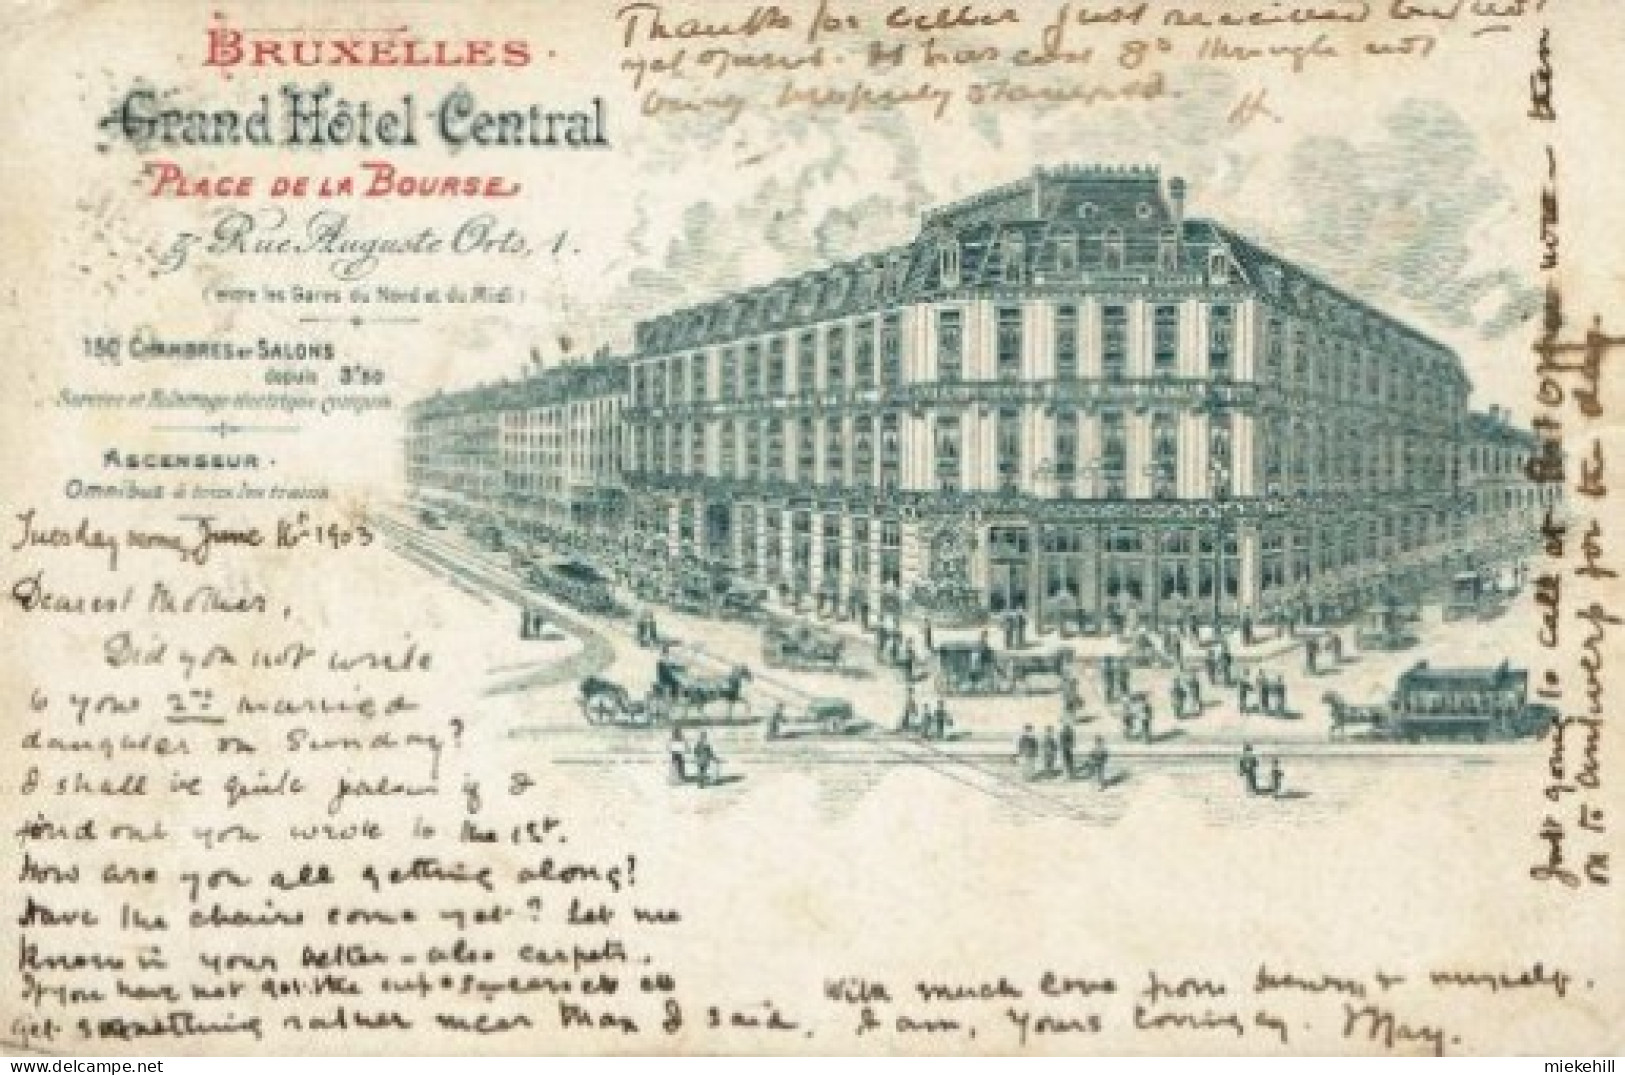 BRUXELLES.
Grand Hôtel Central
PLACE DE LA BOURSE
Rue Auguste Orts, 1.
(entre les Gares du Nord et du Midi)
150 CHAMBRES et SALONS
depuis 3f50
Service et Eclairage électrique compris
ASCENSEUR.
Omnibus à tous les trains
Thanks for letter just received but not
yet opened. It has cost 8d through not
being properly stamped.
H.
Tuesday June 16th 1903
Dearest Mother,
Did you not write
to your 2nd married
daughter on Sunday?
I shall be quite jealous if I
find out you wrote to the 1st.
How are you all getting along?
Have the chairs come yet? Let me
know in your letter - also carpets.
If you have not got the cup & saucers etc
get something rather nicer than I said.
With much love from Henry & myself.
I am, Yours lovingly. May.
Just going to call at Post Office now - then
on to Antwerp for the day.
miekehill